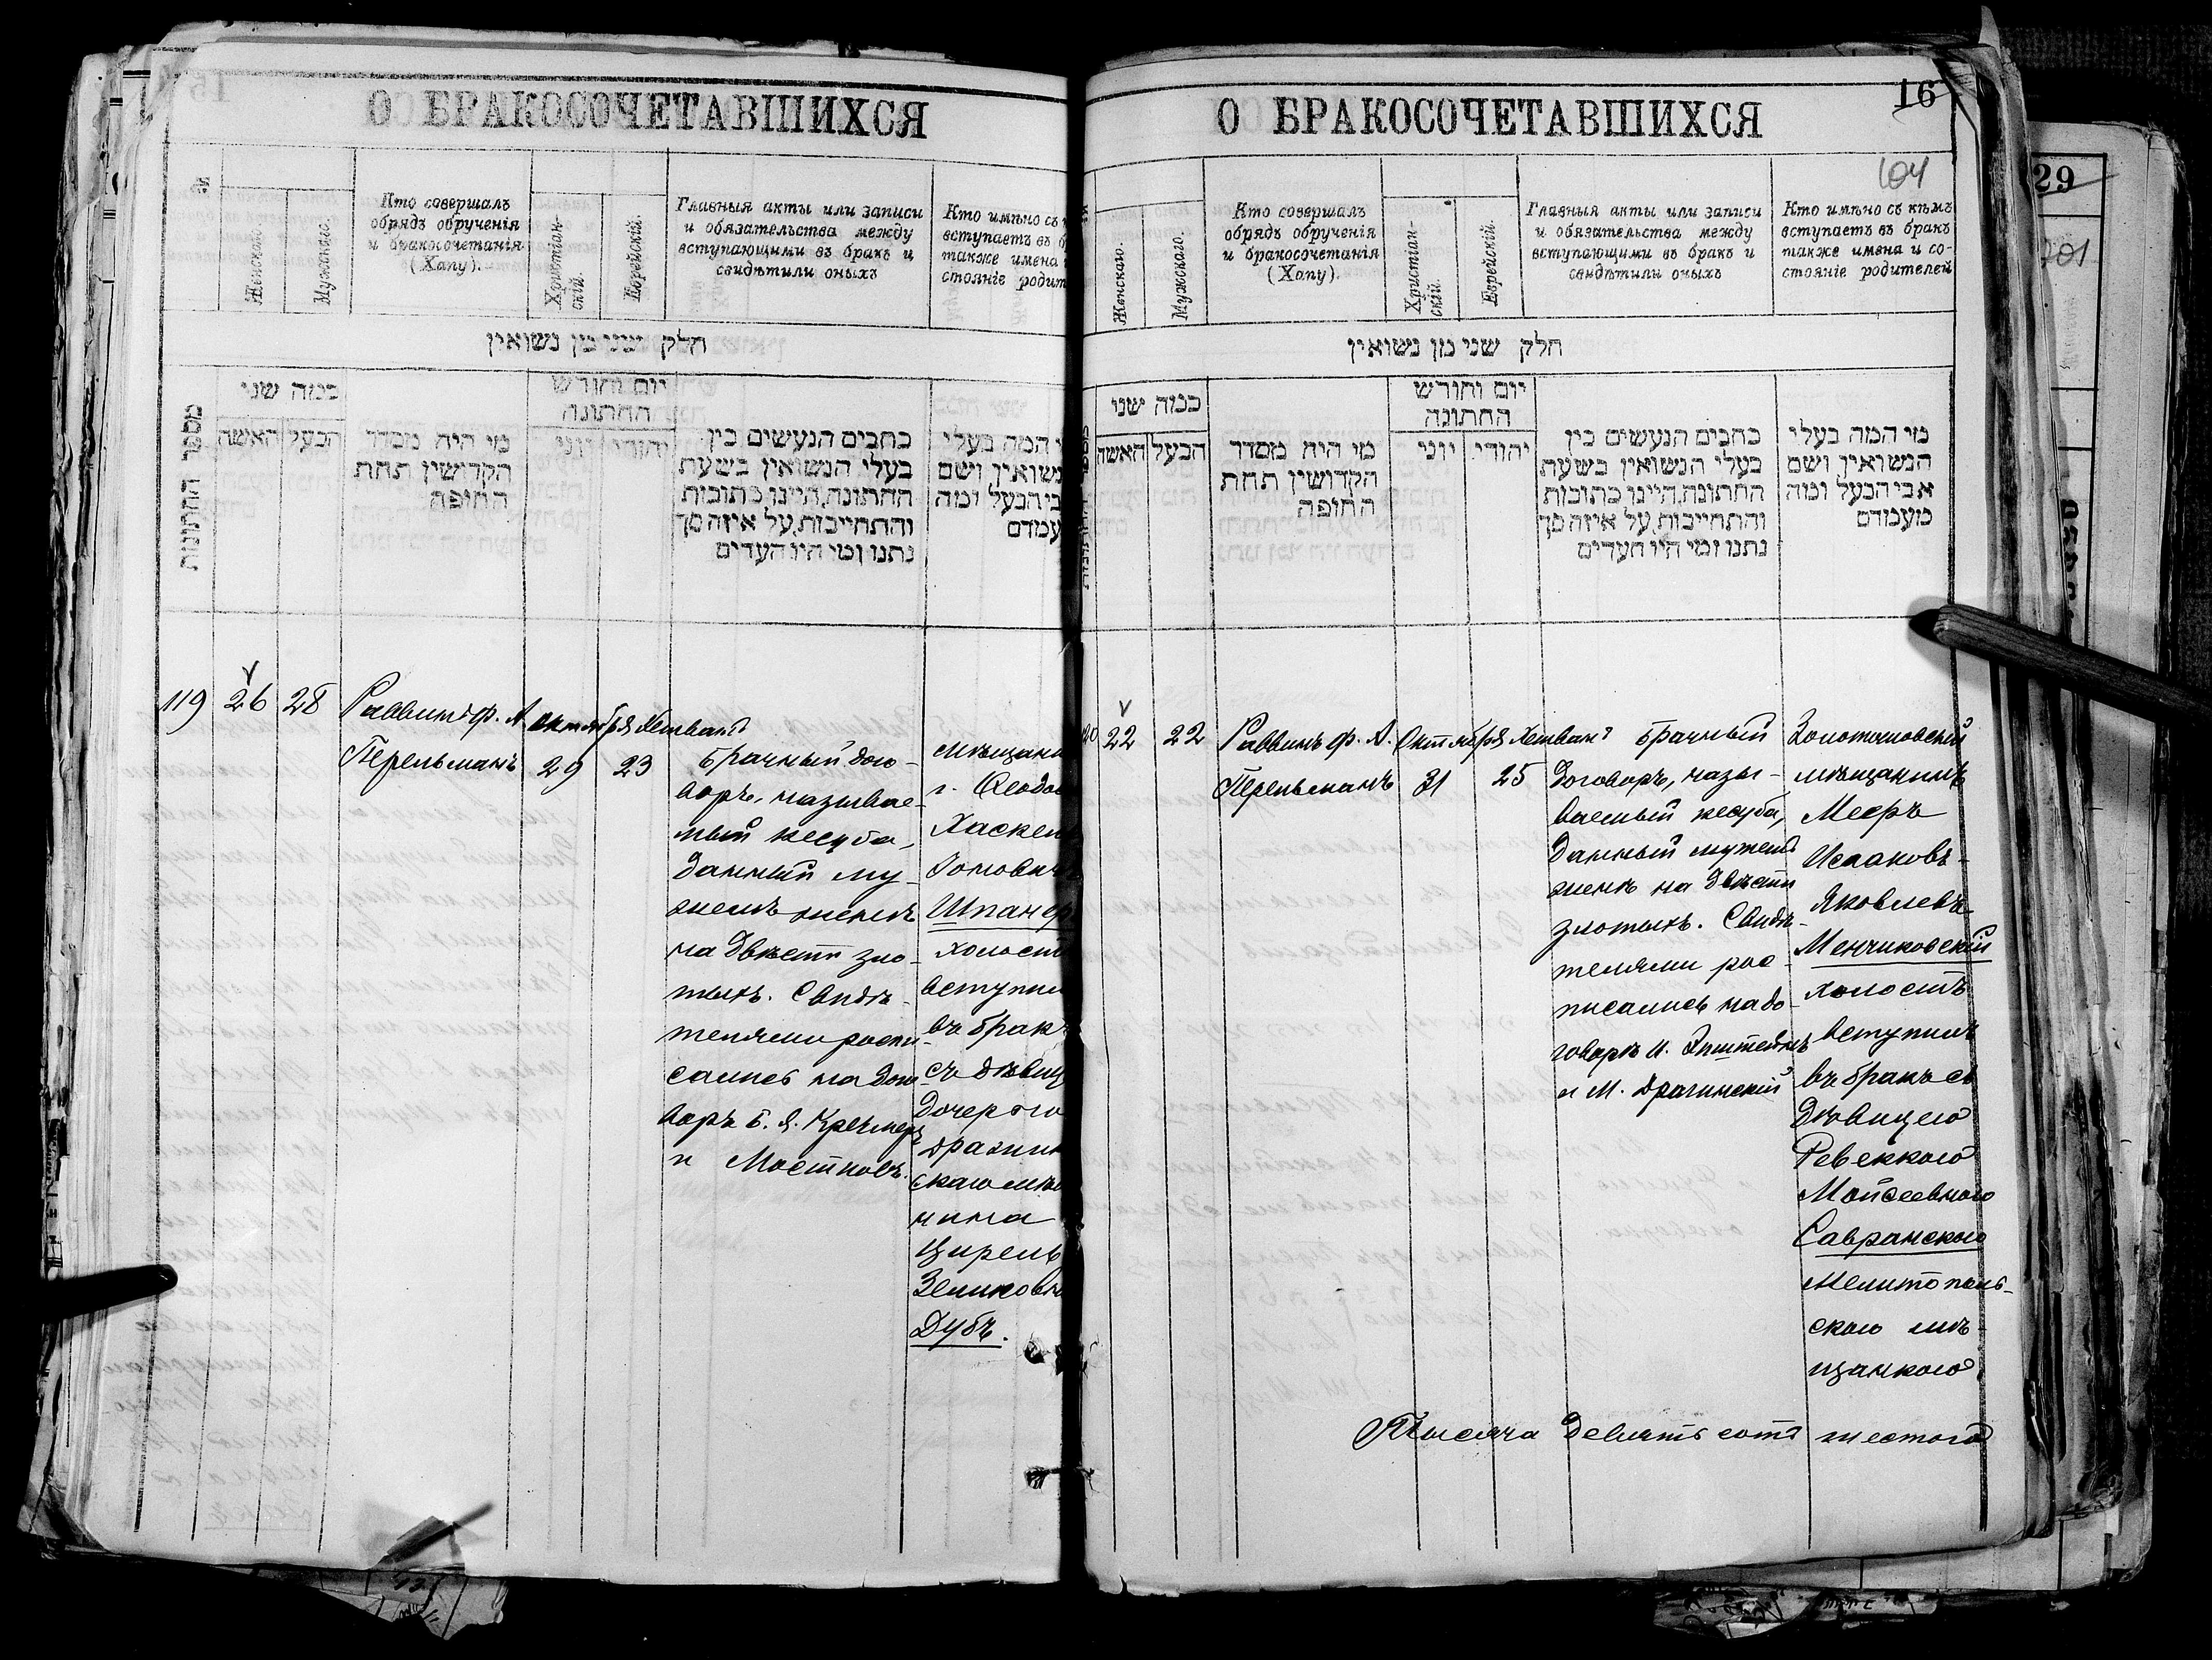 О БРАКОСОЧЕТАВШИХСЯ
№
Женскаго.
Мужскаго.
Кто совершалъ
обрядъ обрученія
и бракосочетанія
(Хапу).
Христіан-
скій.
Еврейскій.
Главныя акты или записи
и обязательства между
вступающими въ бракъ и
свидѣтили оныхъ
Кто имѣно съ
вступаетъ въ
также имена
стояніе родит
חלק שני מן נשואין
מספר החתונות
כמה שני
האשה
הבעל
מי היה מסדר
הקדושין תחת
החופה
יום וחודש
החתונה
יוני
יהודי
כתבים הנעשים בין
בעלי הנשואין בשעת
החתונה,היינו כתובות
והתחייבות,על איזה סך
נתנו ומי היו העדים
המה בעלי
נשואין ושם
בי הבעל ומה
עמדם
119
26
28
Раввинъ ф. А
Перельманъ
октября
29
Хешванъ
23
Брачный дого-
воръ, называе-
мый кесуба,
данный му-
жемъ женѣ
на двѣсти зло-
тыхъ. Свидѣ-
телями распи-
сались на дого
ворѣ Б. Я. Кречмеръ
и Мостковъ.
мѣщани
г. Ѳеодос
Хаскел
Шпанер
холост
вступи
въ бракъ
съ дѣвиц
дочерью
скаго мѣщ
нина
Цирель
Зеликовн
Дубъ.
О БРАКОСОЧЕТАВШИХСЯ
16
104
Женскаго.
Мужскаго.
Кто совершалъ
обрядъ обрученія
и бракосочетанія
(Хапу).
Христіан-
скій.
Еврейскій.
Главныя акты или записи
и обязательства между
вступающими въ бракъ и
свидѣтили оныхъ
Кто имѣно съ кѣмъ
вступаетъ въ бракъ
также имена и со-
стояніе родителей
חלק שני מן נשואין
כמה שני
האשה
הבעל
מי היה מסדר
הקדושין תחת
החופה
יום וחודש
החתונה
יוני
יהודי
כתבים הנעשים בין
בעלי הנשואין בשעת
החתונה,היינו כתובות
והתחייבות,על איזה סך
נתנו ומי היו העדים
מי המה בעלי
הנשואין ושם
אבי הבעל ומה
מעמדם
22
22
Раввинъ ф. А.
Перельманъ
Октября
31
Хешванъ
25
Брачный
договоръ, назы-
ваемый кесуба,
данный мужемъ
женѣ на двѣсти
злотыхъ. Свидѣ-
телями рос-
писались на до-
говорѣ И. Эпштейнъ
и М. Драгинскій
Золотоновскій
мѣщанинъ
Мееръ
Исааковъ-
Яковлевъ
Менчиковскій
холостъ
вступилъ
въ бракъ съ
дѣвицею
Ревеккою
Мойсеевною
Савранскою
мелитополь-
скою мѣ-
щанкою.
Тысяча девятьсотъ шестого
29
701